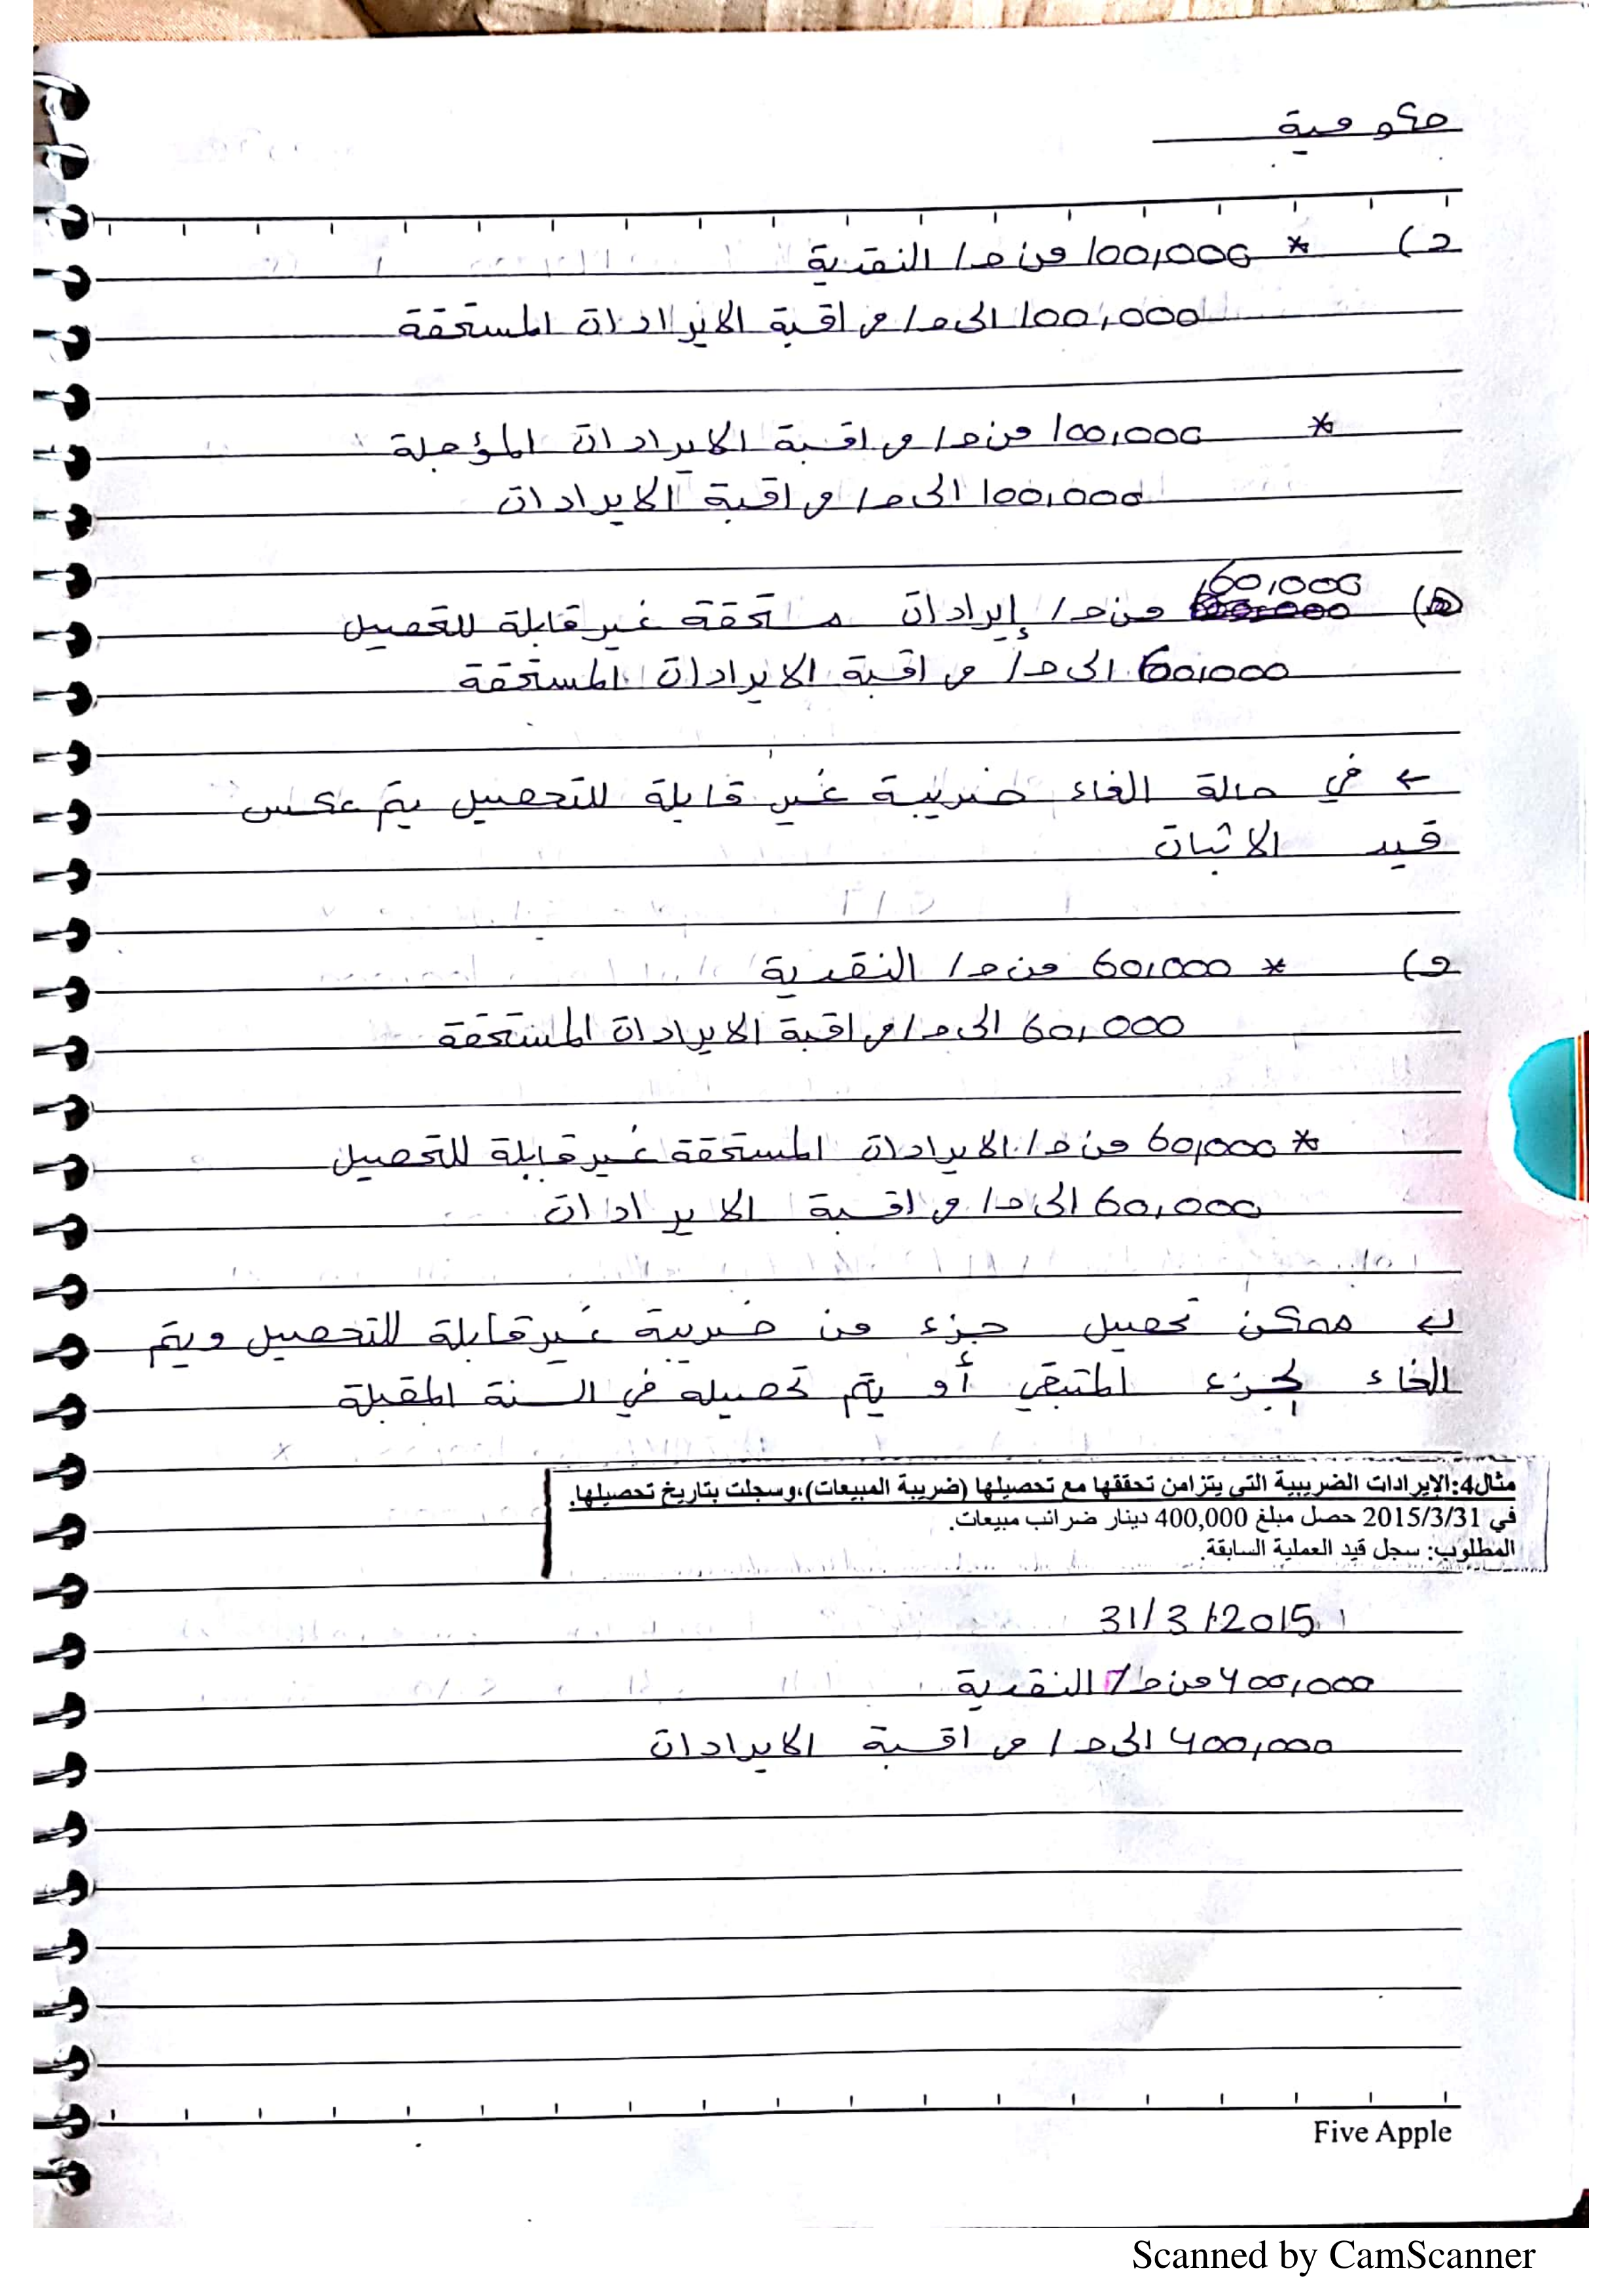 حكومية
د) * 100,000 من ح/ النقدية
100,000 الى ح/ مراقبة الايرادات المستحقة
* 100,000 من ح/ مراقبة الايرادات المؤجلة
100,000 الى ح/ مراقبة الايرادات
هـ) 60,000 من ح/ إيرادات مستحقة غير قابلة للتحصيل
60,000 الى ح/ مراقبة الايرادات المستحقة
← في حالة الغاء ضريبة غير قابلة للتحصيل يتم عكس
قيد الاثبات
و) * 60,000 من ح/ النقدية
60,000 الى ح/ مراقبة الايرادات المستحقة
* 60,000 من ح/ الايرادات المستحقة غير قابلة للتحصيل
60,000 الى ح/ مراقبة الايرادات
ممكن تحصيل جزء من ضريبة غير قابلة للتحصيل ويتم
الغاء الجزء المتبقي أو يتم تحصيله في السنة المقبلة
مثال4:الإيرادات الضريبية التي يتزامن تحققها مع تحصيلها (ضريبة المبيعات)،وسجلت بتاريخ تحصيلها.
في 2015/3/31 حصل مبلغ 400,000 دينار ضرائب مبيعات.
المطلوب: سجل قيد العملية السابقة.
31/3/2015
400,000 من ح/ النقدية
400,000 الى ح/ مراقبة الايرادات
Five Apple
Scanned by CamScanner